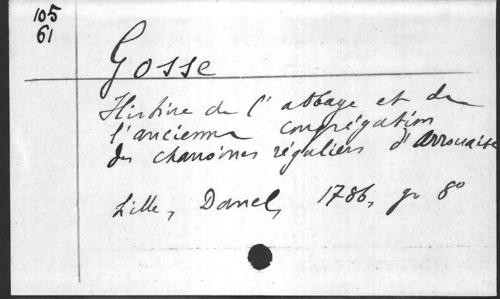 105
61
Gosse
Histoire de l'abbaye et de
l'ancienne congrégation
des chanoines réguliers d'Arrouaise
Lille, Danel, 1786, gr 8º